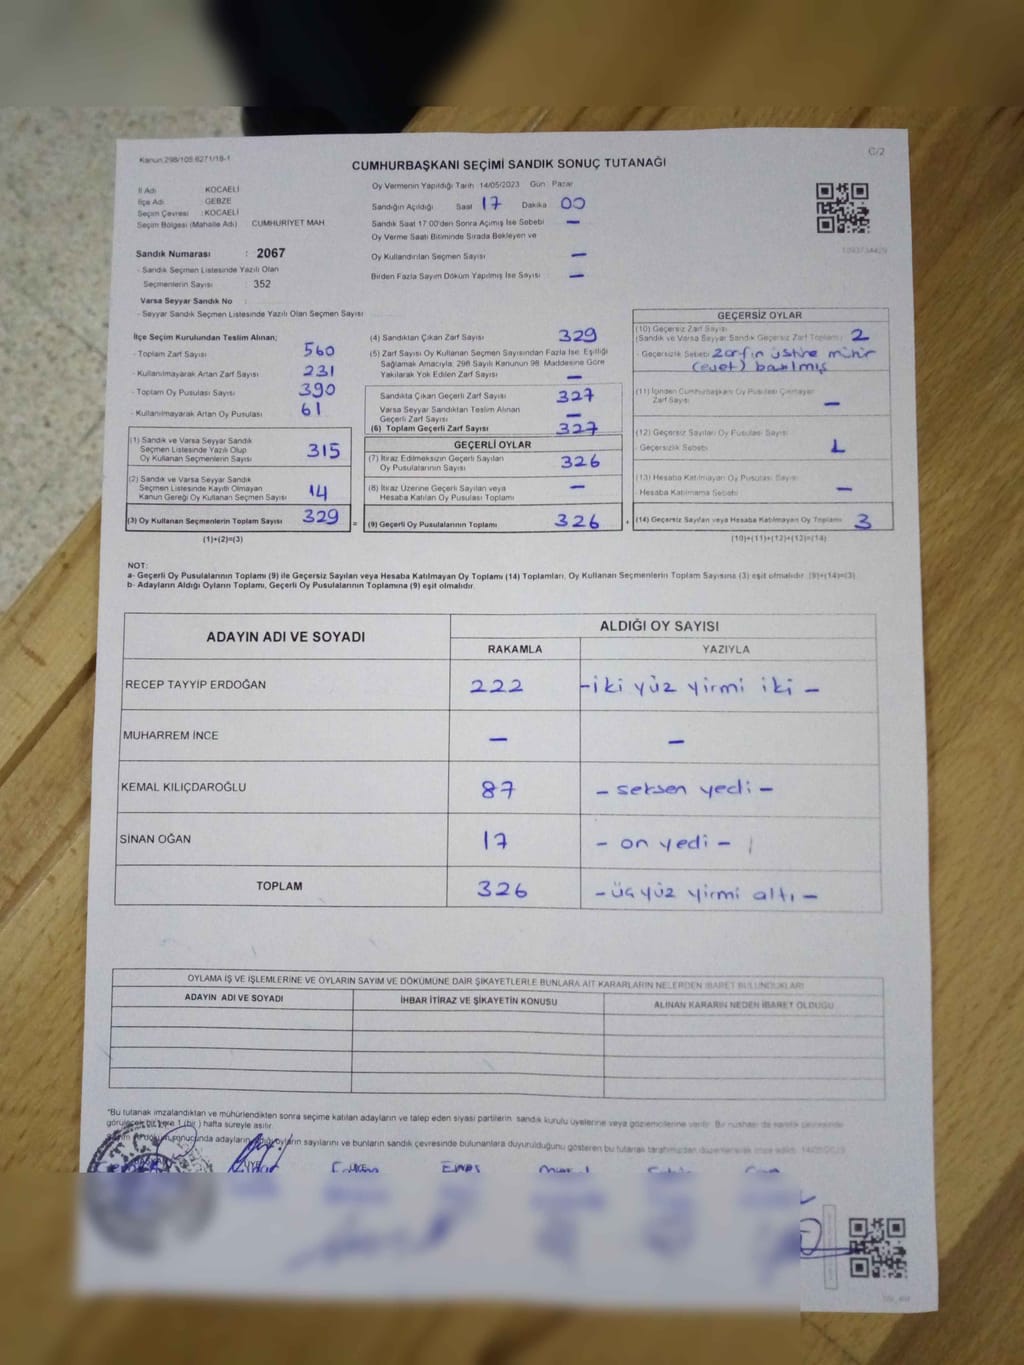 Kanun 298/105 6271/18-1
C/2
CUMHURBAŞKANI SEÇİMİ SANDIK SONUÇ TUTANAĞI
İl Adı KOCAELİ
İlçe Adı GEBZE
Seçim Çevresi : KOCAELİ
Seçim Bölgesi (Mahalle Adı) CUMHURİYET MAH
Sandık Numarası : 2067
- Sandık Seçmen Listesinde Yazılı Olan
Seçmenlerin Sayısı : 352
Varsa Seyyar Sandık No :
- Seyyar Sandık Seçmen Listesinde Yazılı Olan Seçmen Sayısı
Oy Vermenin Yapıldığı Tarih 14/05/2023 Gün : Pazar
Sandığın Açıldığı Saat 17 Dakika 00
Sandık Saat 17:00'den Sonra Açılmış İse Sebebi —
Oy Verme Saati Bitiminde Sırada Bekleyen ve
Oy Kullandırılan Seçmen Sayısı —
Birden Fazla Sayım Döküm Yapılmış İse Sayısı —
İlçe Seçim Kurulundan Teslim Alınan;
- Toplam Zarf Sayısı 560
- Kullanılmayarak Artan Zarf Sayısı 231
- Toplam Oy Pusulası Sayısı 390
- Kullanılmayarak Artan Oy Pusulası 61
(1) Sandık ve Varsa Seyyar Sandık
Seçmen Listesinde Yazılı Olup
Oy Kullanan Seçmenlerin Sayısı 315
(2) Sandık ve Varsa Seyyar Sandık
Seçmen Listesinde Kayıtlı Olmayan
Kanun Gereği Oy Kullanan Seçmen Sayısı 14
(3) Oy Kullanan Seçmenlerin Toplam Sayısı 329
(1)+(2)=(3)
(4) Sandıktan Çıkan Zarf Sayısı 329
(5) Zarf Sayısı Oy Kullanan Seçmen Sayısından Fazla İse, Eşitliği
Sağlamak Amacıyla, 298 Sayılı Kanunun 98. Maddesine Göre
Yakılarak Yok Edilen Zarf Sayısı —
Sandıkta Çıkan Geçerli Zarf Sayısı 327
Varsa Seyyar Sandıktan Teslim Alınan
Geçerli Zarf Sayısı —
(6) Toplam Geçerli Zarf Sayısı 327
GEÇERLİ OYLAR
(7) İtiraz Edilmeksizin Geçerli Sayılan
Oy Pusulalarının Sayısı 326
(8) İtiraz Üzerine Geçerli Sayılan veya
Hesaba Katılan Oy Pusulası Toplamı —
= (9) Geçerli Oy Pusulalarının Toplamı 326 +
GEÇERSİZ OYLAR
(10) Geçersiz Zarf Sayısı
(Sandık ve Varsa Seyyar Sandık Geçersiz Zarf Toplamı) 2
- Geçersizlik Sebebi Zarfın üstüne mühür
(evet) basılmış
(11) İçinden Cumhurbaşkanı Oy Pusulası Çıkmayan
Zarf Sayısı —
(12) Geçersiz Sayılan Oy Pusulası Sayısı
- Geçersizlik Sebebi 1
(13) Hesaba Katılmayan Oy Pusulası Sayısı
Hesaba Katılmama Sebebi —
(14) Geçersiz Sayılan veya Hesaba Katılmayan Oy Toplamı 3
(10)+(11)+(12)+(13)=(14)
NOT:
a- Geçerli Oy Pusulalarının Toplamı (9) ile Geçersiz Sayılan veya Hesaba Katılmayan Oy Toplamı (14) Toplamları, Oy Kullanan Seçmenlerin Toplam Sayısına (3) eşit olmalıdır. (9)+(14)=(3)
b- Adayların Aldığı Oyların Toplamı, Geçerli Oy Pusulalarının Toplamına (9) eşit olmalıdır.
ADAYIN ADI VE SOYADI ALDIĞI OY SAYISI
RAKAMLA YAZIYLA
RECEP TAYYİP ERDOĞAN 222 - iki yüz yirmi iki -
MUHARREM İNCE — —
KEMAL KILIÇDAROĞLU 87 - seksen yedi -
SİNAN OĞAN 17 - on yedi -
TOPLAM 326 - üç yüz yirmi altı -
OYLAMA İŞ VE İŞLEMLERİNE VE OYLARIN SAYIM VE DÖKÜMÜNE DAİR ŞİKAYETLERLE BUNLARA AİT KARARLARIN NELERDEN İBARET BULUNDUKLARI
ADAYIN ADI VE SOYADI İHBAR İTİRAZ VE ŞİKAYETİN KONUSU ALINAN KARARIN NEDEN İBARET OLDUĞU
"Bu tutanak imzalandıktan ve mühürlendikten sonra seçime katılan adayların ve talep eden siyasi partilerin sandık kurulu üyelerine veya gözlemcilerine verilir. Bir nüshası da sandık çevresinde
görülecek bir yere 1 (bir) hafta süreyle asılır.
sonucunda adayların oyların sayılarını ve bunların sandık çevresinde bulunanlara duyurulduğunu gösteren bu tutanak tarafımızdan düzenlenerek imza edildi. 14/05/2023